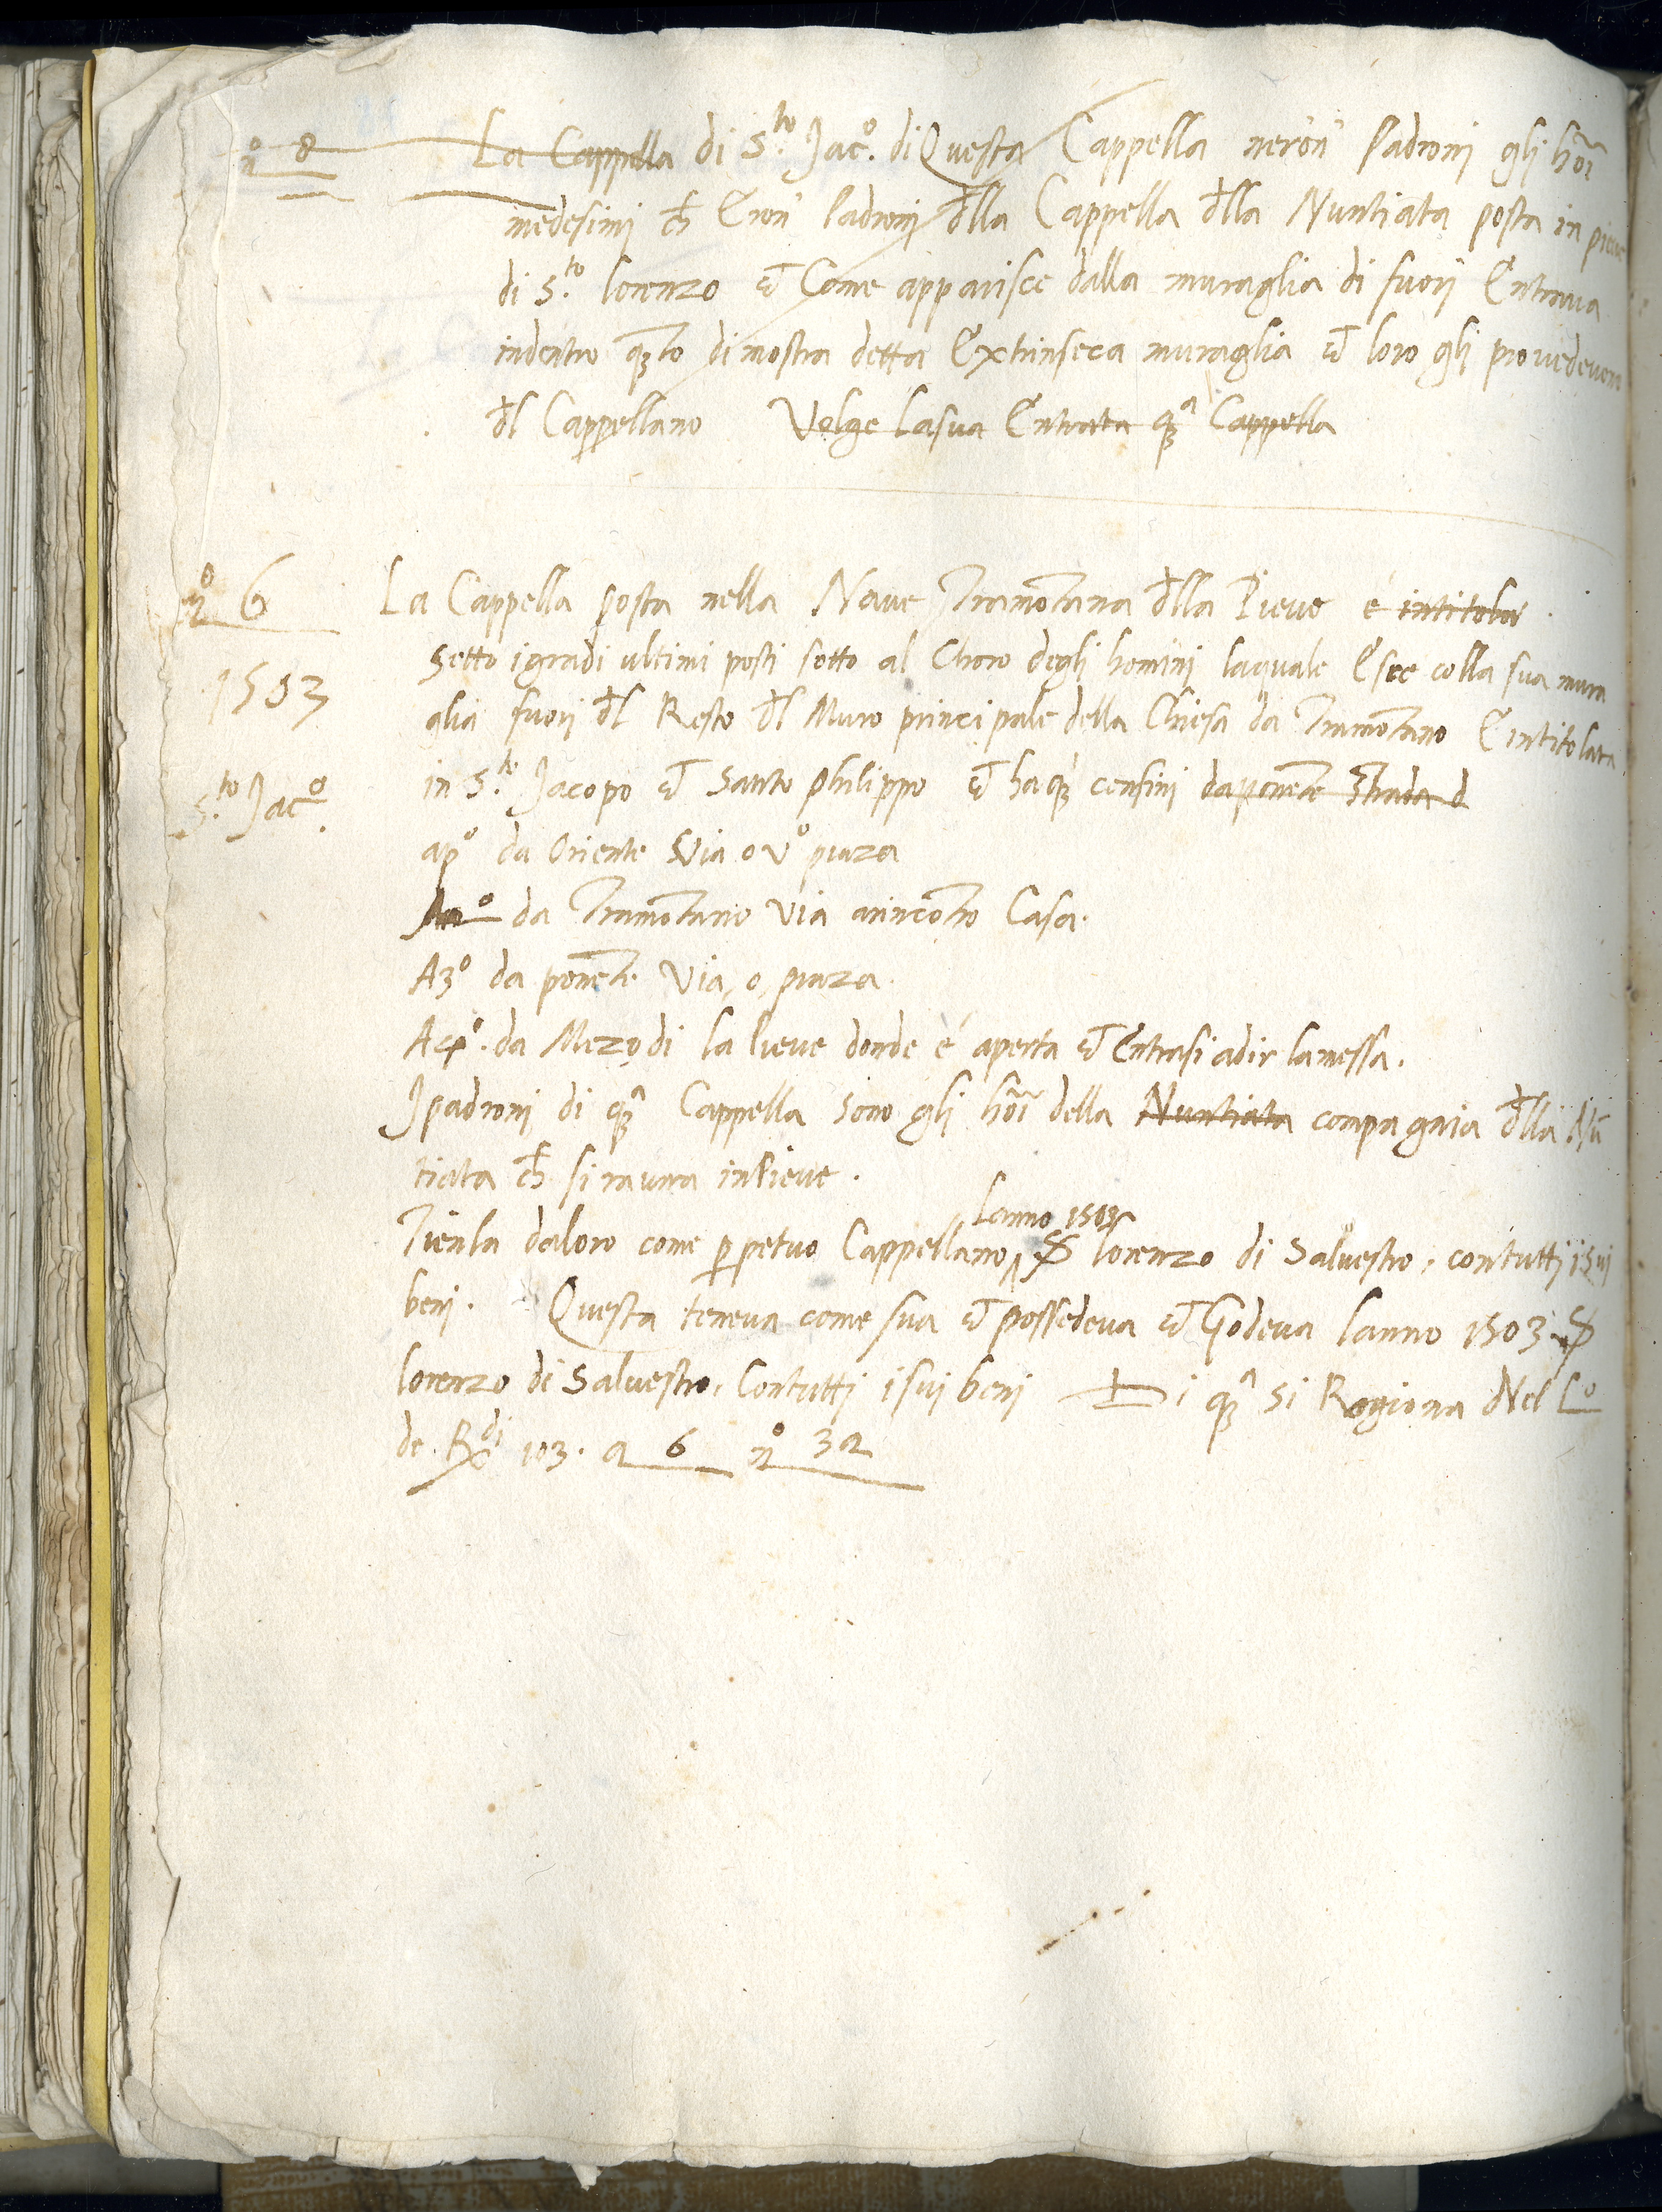 nº 8 La Cappella di S.to Jac.º di Questa Cappella neron' Padroni gli hōi
medesimi ch̄ Eron' Padroni dlla Cappella dlla Nuntiata posta in pieve
di S.to lorenzo et Come apparisce dalla muraglia di fuori Entrava
indentro qto dimostra detta Extrinseca muraglia et loro gli provedevon
dl Cappellano Volge la sua Entrata qª Cappella
nº 6 La Cappella posta nella Nave Tramōtana dlla Pieve é intitola
Sotto i gradi ultimi posti sotto al Choro degli homini laquale Esce colla sua mura
1503
glia fuori dl Resto dl Muro principale della Chiesa da Tramōtano E intitolata
S.to Jac.º in S.to Jacopo et Santo Philippo et ha qī confini da ponēte Strada d
apº da Oriente Via o vº piaza
da Tramōtano Via arincōtro Casa.
A3º da ponēte Via, o, piaza
A4º. da Mezodi la Pieve donde é aperta et Entrasi adir la messa.
I padroni di qª Cappella sono gli hōi della Nuntiata compagnia dlla Nū
tiata ch̄ si rauna in Pieve.
Lanno 1503
Tienla daloro come perpetuo Cappellano, S lorenzo di Salvestro, con tutti i sui
beni. Questa teneva come sua et possedeva et Godeva lanno 1503 S
lorenzo di Salvestro. Con tutti i sui beni Di qª si Ragiona Nel Lº
de Rdi 103. a 6 nº 32